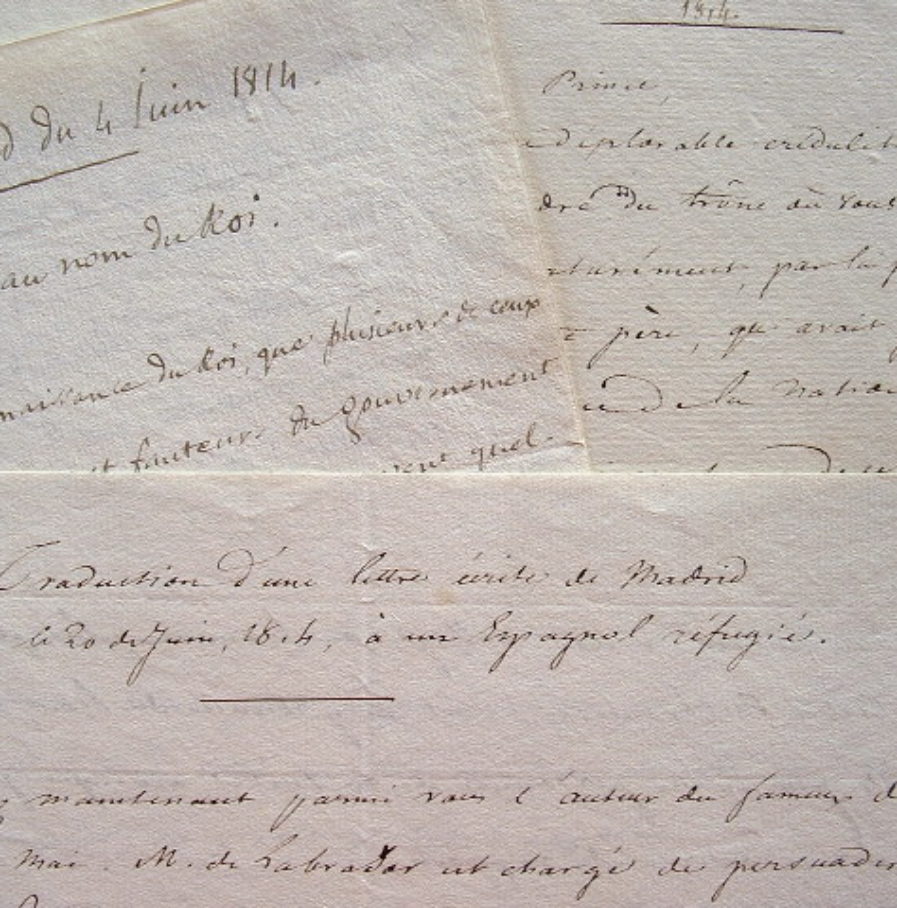 d du 4 Juin 1814.
au nom du Roi.
naissance du Roi, que plusieurs de ceux
et fauteurs du gouvernement
vent quel-
1814.
Prince,
déplorable crédulité
dre du trône où vous
turément, par la p
père, qui avait
de la Nation
Traduction d'une lettre écrite de Madrid
le 20 de Juin, 1814, à un Espagnol réfugié.
maintenant parmi vous l'auteur du fameux d
Mai. M. de Labrador est chargé de persuader